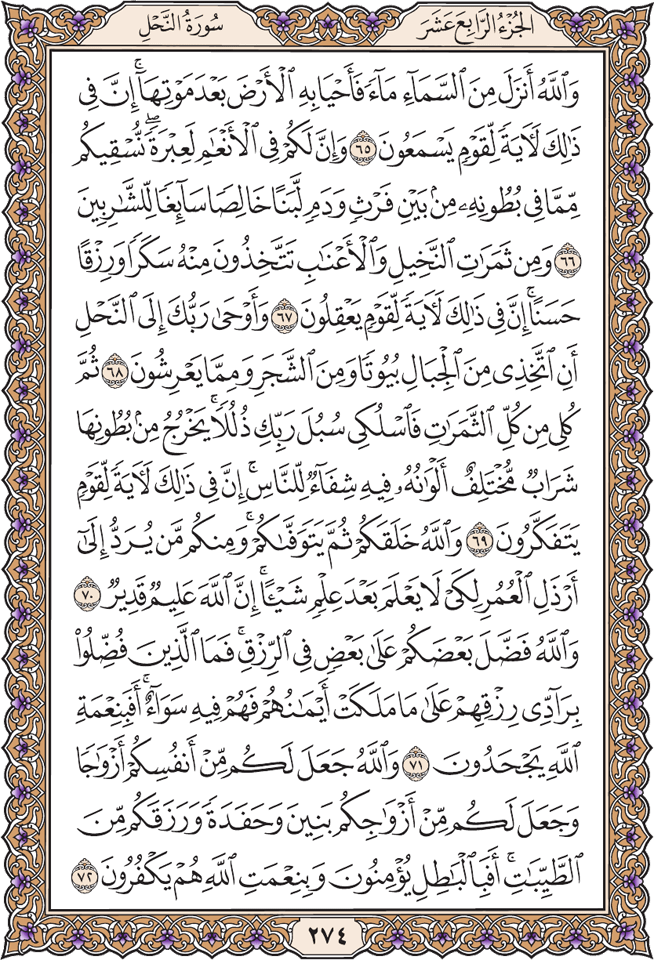 الجُزْءُ الرَّابِعَ عَشَرَ
سُورَةُ النَّحْلِ
وَٱللَّهُ أَنزَلَ مِنَ ٱلسَّمَآءِ مَآءً فَأَحْيَا بِهِ ٱلْأَرْضَ بَعْدَ مَوْتِهَآۚ إِنَّ فِى
ذَٰلِكَ لَءَايَةً لِّقَوْمٍ يَسْمَعُونَ ٦٥ وَإِنَّ لَكُمْ فِى ٱلْأَنْعَٰمِ لَعِبْرَةًۖ نُّسْقِيكُم
مِّمَّا فِى بُطُونِهِۦ مِنۢ بَيْنِ فَرْثٍ وَدَمٍ لَّبَنًا خَالِصًا سَآئِغًا لِّلشَّٰرِبِينَ
٦٦ وَمِن ثَمَرَٰتِ ٱلنَّخِيلِ وَٱلْأَعْنَٰبِ تَتَّخِذُونَ مِنْهُ سَكَرًا وَرِزْقًا
حَسَنًاۚ إِنَّ فِى ذَٰلِكَ لَءَايَةً لِّقَوْمٍ يَعْقِلُونَ ٦٧ وَأَوْحَىٰ رَبُّكَ إِلَى ٱلنَّحْلِ
أَنِ ٱتَّخِذِى مِنَ ٱلْجِبَالِ بُيُوتًا وَمِنَ ٱلشَّجَرِ وَمِمَّا يَعْرِشُونَ ٦٨ ثُمَّ
كُلِى مِن كُلِّ ٱلثَّمَرَٰتِ فَٱسْلُكِى سُبُلَ رَبِّكِ ذُلُلًاۚ يَخْرُجُ مِنۢ بُطُونِهَا
شَرَابٌ مُّخْتَلِفٌ أَلْوَٰنُهُۥ فِيهِ شِفَآءٌ لِّلنَّاسِۚ إِنَّ فِى ذَٰلِكَ لَءَايَةً لِّقَوْمٍ
يَتَفَكَّرُونَ ٦٩ وَٱللَّهُ خَلَقَكُمْ ثُمَّ يَتَوَفَّىٰكُمْۚ وَمِنكُم مَّن يُرَدُّ إِلَىٰٓ
أَرْذَلِ ٱلْعُمُرِ لِكَىْ لَا يَعْلَمَ بَعْدَ عِلْمٍ شَيْـًٔاۚ إِنَّ ٱللَّهَ عَلِيمٌ قَدِيرٌ ٧٠
وَٱللَّهُ فَضَّلَ بَعْضَكُمْ عَلَىٰ بَعْضٍ فِى ٱلرِّزْقِۚ فَمَا ٱلَّذِينَ فُضِّلُوا۟
بِرَآدِّى رِزْقِهِمْ عَلَىٰ مَا مَلَكَتْ أَيْمَٰنُهُمْ فَهُمْ فِيهِ سَوَآءٌۚ أَفَبِنِعْمَةِ
ٱللَّهِ يَجْحَدُونَ ٧١ وَٱللَّهُ جَعَلَ لَكُم مِّنْ أَنفُسِكُمْ أَزْوَٰجًا
وَجَعَلَ لَكُم مِّنْ أَزْوَٰجِكُم بَنِينَ وَحَفَدَةً وَرَزَقَكُم مِّنَ
ٱلطَّيِّبَٰتِۚ أَفَبِٱلْبَٰطِلِ يُؤْمِنُونَ وَبِنِعْمَتِ ٱللَّهِ هُمْ يَكْفُرُونَ ٧٢
٢٧٤